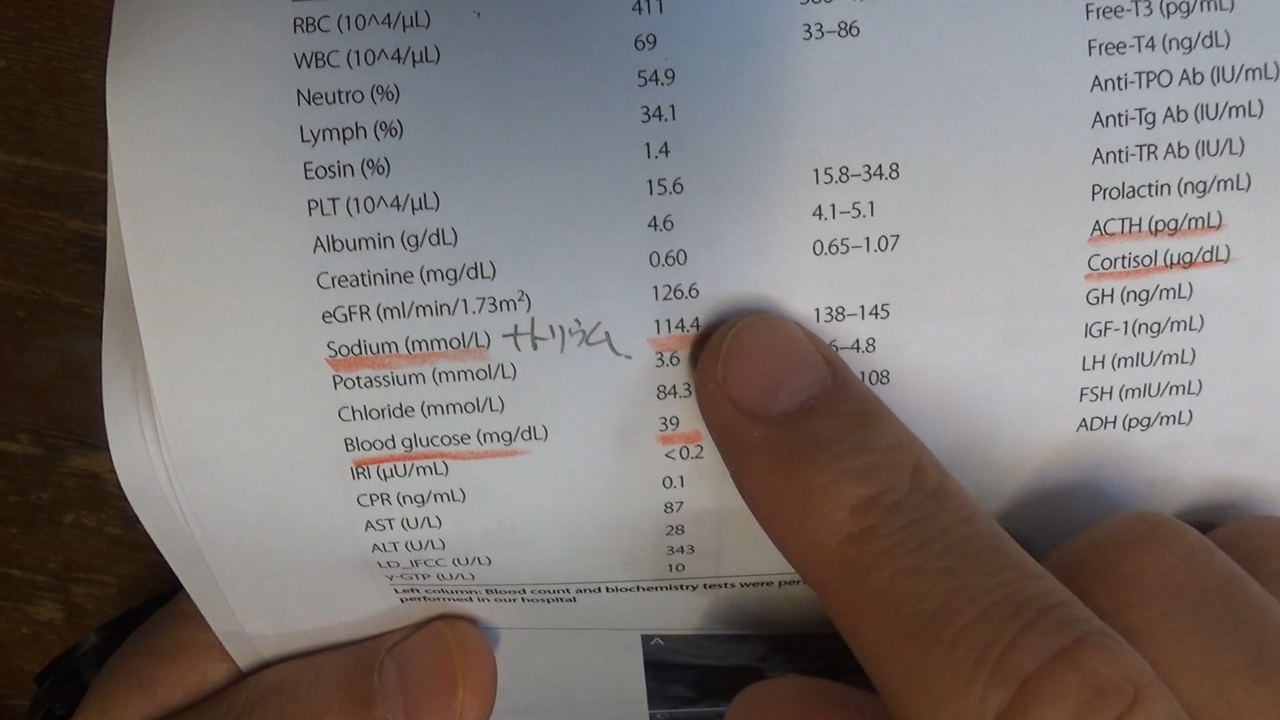 RBC (10^4/μL) 411 Free-T3 (pg/mL)
WBC (10^4/μL) 69 33–86 Free-T4 (ng/dL)
Neutro (%) 54.9 Anti-TPO Ab (IU/mL)
Lymph (%) 34.1 Anti-Tg Ab (IU/mL)
Eosin (%) 1.4 Anti-TR Ab (IU/L)
PLT (10^4/μL) 15.6 15.8–34.8 Prolactin (ng/mL)
Albumin (g/dL) 4.6 4.1–5.1 ACTH (pg/mL)
Creatinine (mg/dL) 0.60 0.65–1.07 Cortisol (μg/dL)
eGFR (ml/min/1.73m²) 126.6 GH (ng/mL)
Sodium (mmol/L) ナトリウム 114.4 138–145 IGF-1(ng/mL)
Potassium (mmol/L) 3.6 –4.8 LH (mIU/mL)
Chloride (mmol/L) 84.3 108 FSH (mIU/mL)
Blood glucose (mg/dL) 39 ADH (pg/mL)
IRI (μU/mL) <0.2
CPR (ng/mL) 0.1
AST (U/L) 87
ALT (U/L) 28
LD_IFCC (U/L) 343
γ-GTP (U/L) 10
Left column: Blood count and biochemistry tests were
performed in our hospital
A